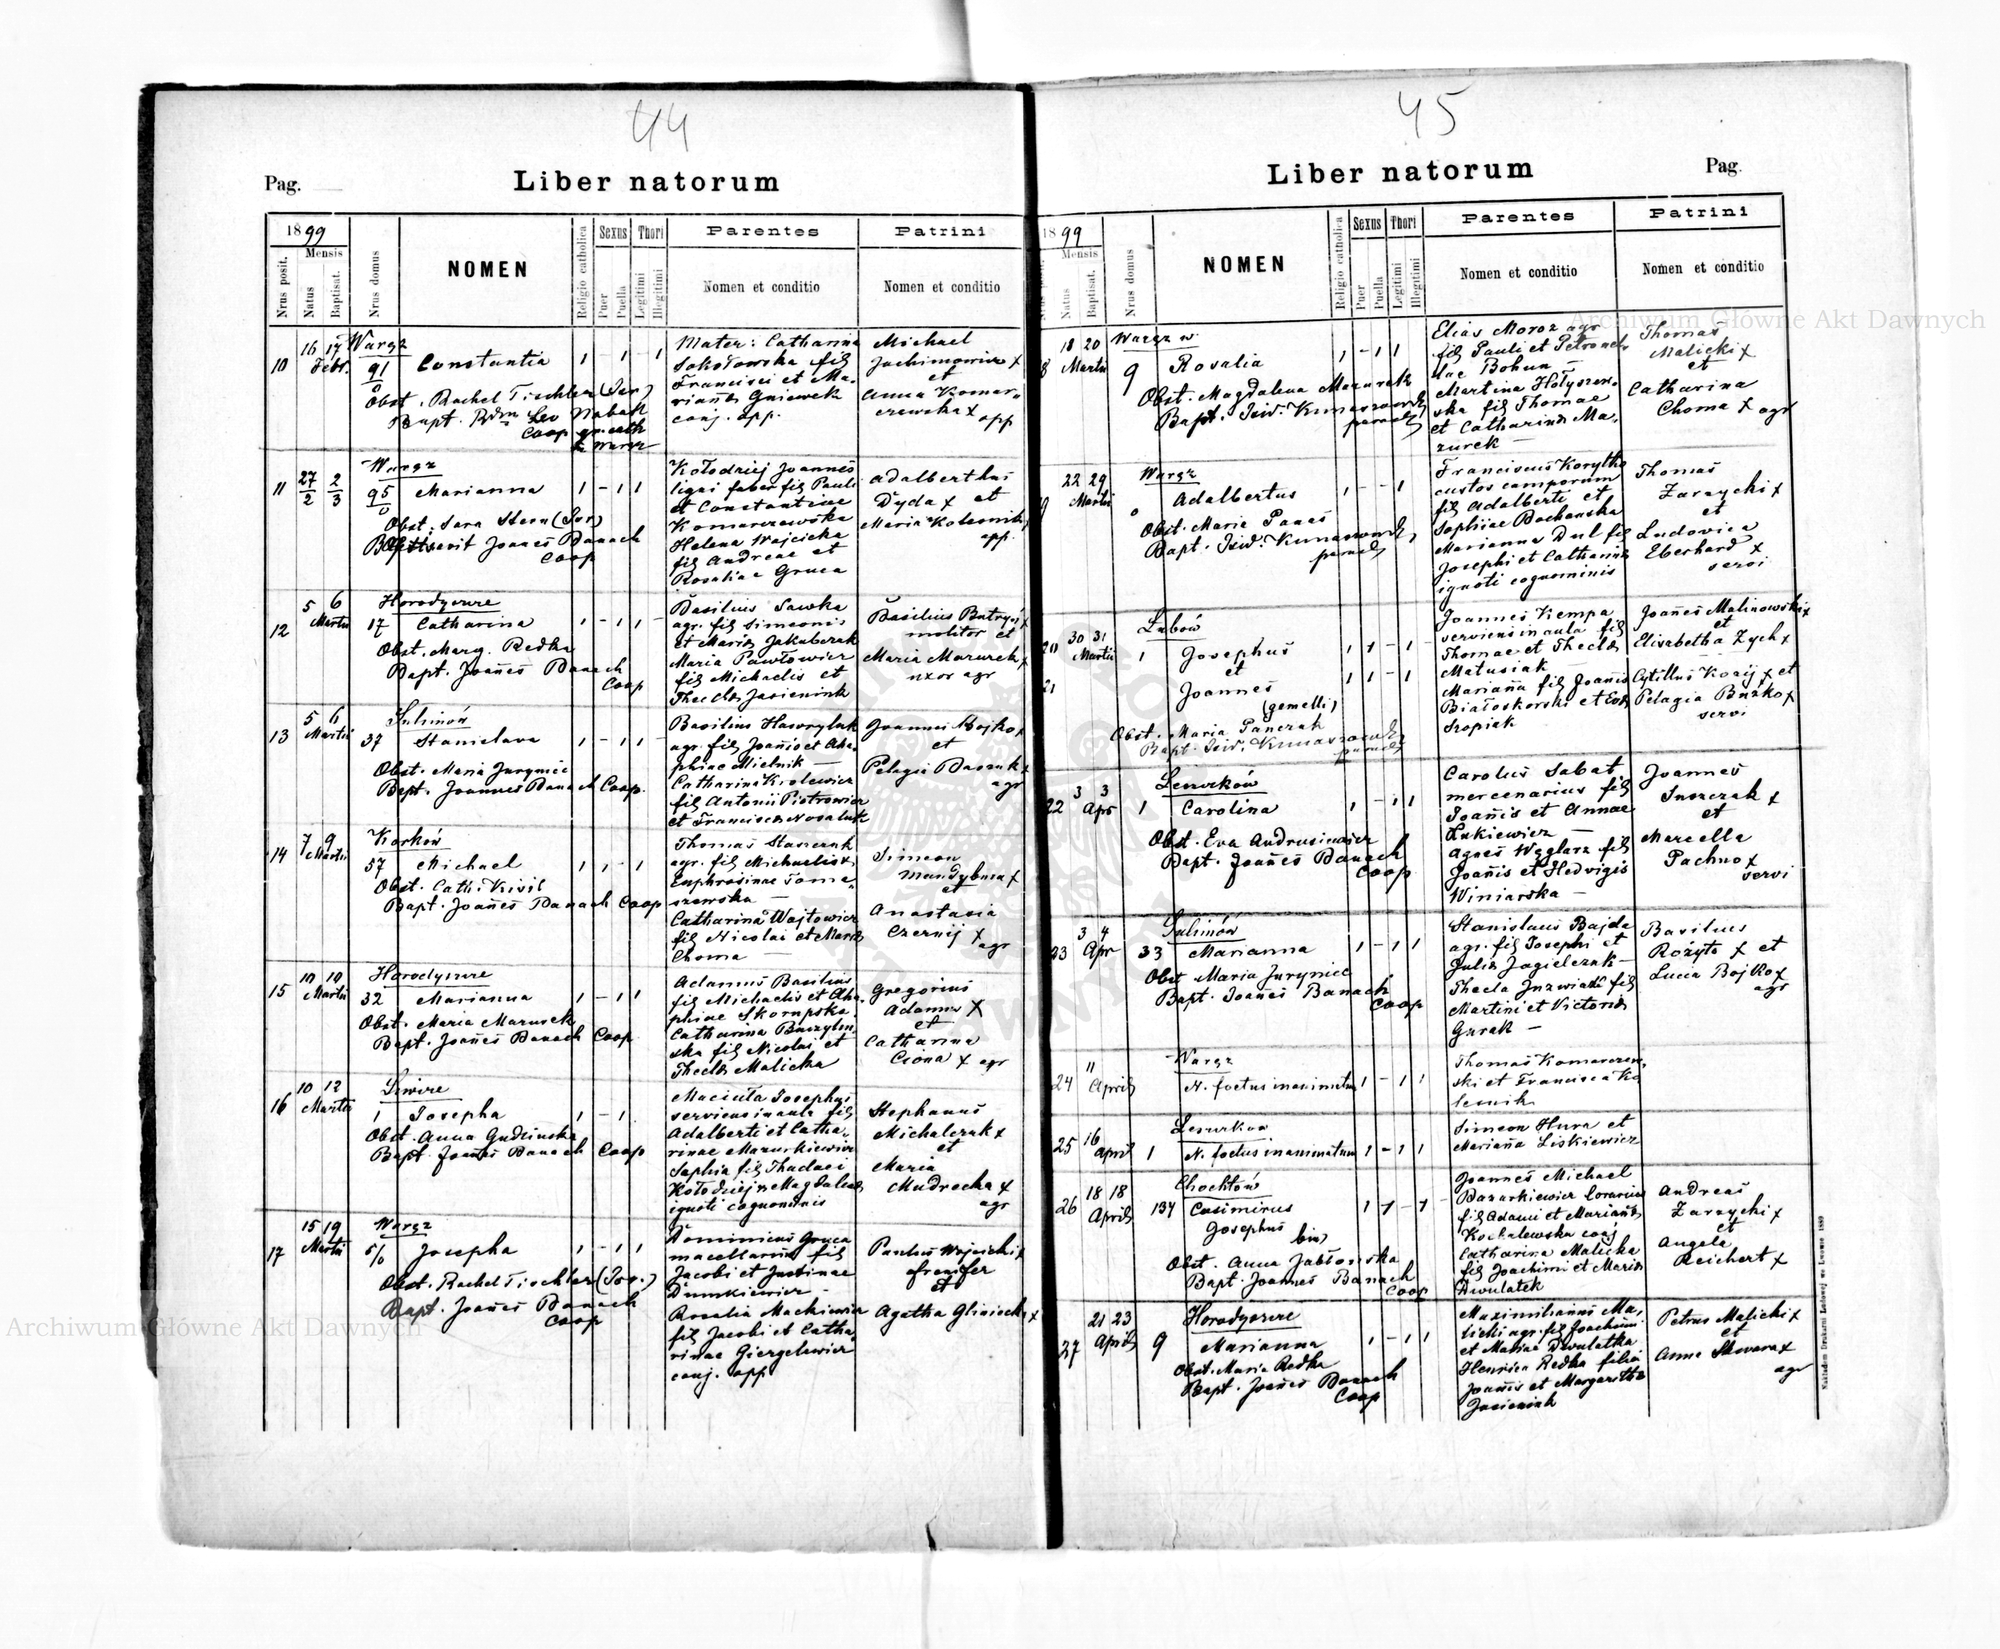 44
Pag.
Liber natorum
1899
Mensis
Nrus posit.
Natus
Baptisat.
Nrus domus
NOMEN
Religio catholica
Sexus
Puer
Puella
Thori
Legitimi
Illegitimi
Parentes
Nomen et conditio
Patrini
Nomen et conditio
10
16 17
Febr.
Wargz
91
Constantia
Obst. Rachel Tischler (Isr)
Bapt. Rdm Leo Nabak
Coop gr. cath
Wargz
Mater: Catharina
Sokołowska fil
Francisci et Ma-
riannae Gniewek
conj. opp.
Michael
Jachimowicz x
et
Anna Komar-
czewska x
opp
11
27/2 2/3
Wargz
95
Marianna
Obst. Sara Stern (Isr)
Baptisavit Joanes Banach
Coop
Kołodziej Joannes
ligni faber fil Pauli
et Constantiae
Komarczewska
Helena Wojcicka
fil Andreae et
Rosaliae Gruca
Adalberthus
Dyda x et
Maria Kolesnik
opp.
12
5 6
Martii
Horodyszcze
17 Catharina
Obst. Marg. Redka
Bapt. Joanes Banach
Coop
Basilius Sawka
agr. fil Simeonis
et Maria Jakubczak
Maria Pawłowicz
fil Michaelis et
Thecla Jasieniuk
Basilius Butryn x
molitor et
Maria Mazurek x
uxor agr
13
5 6
Martii
Sulimów
37 Stanislava
Obst. Maria Jurynec
Bapt. Joannes Banach Coop.
Basilius Hawryluk
agr. fil Joanis et Aga-
phiae Mielnik —
Catharina Krolewicz
fil Antonii Piotrowicz
et Francisca Nosaluk
Joannes Bojko x
et
Pelagii Baszuk x
agr
14
7 9
Martii
Korków
57 Michael
Obst. Cath. Kivil
Bapt. Joanes Banach Coop
Thomas Stanczuk
agr. fil Michaelis x
Euphrosinae Toma-
szewska —
Catharina Wojtowicz
fil Nicolai et Maria
Choma —
Simeon
Mandybura x
et
Anastasia
Czernij x
agr
15
10 10
Martii
Horodyszcze
32 Marianna
Obst. Maria Mazurek
Bapt. Joanes Banach Coop
Adamus Basilius
fil Michaelis et Aga-
phiae Skorupska
Catharina Buczylow-
ska fil Nicolai et
Thecla Malicka
Gregorius
Adamus x
et
Catharina
Czona x agr
16
10 12
Martii
1 Josepha
Obst. Anna Gudzinska
Bapt. Joanes Banach Coop
Maciuła Josephus
serviens in aula fil
Adalberti et Catha-
rinae Mazurkiewicz
Sophia fil Thadaei
Kołodziej x Magdalena
ignoti cognominis
Stephanus
Michalczuk x
et
Maria
Mudrocha x
agr
17
15 19
Martii
Wargz
5/0 Josepha
Obst. Rachel Tischler (Isr.)
Bapt. Joanes Banach
Coop
Dominicus Gruca
macellarius fil
Jacobi et Justinae
Dunikiewicz —
Rosalia Mackiewicz
fil Jacobi et Catha-
rinae Giergelewicz
conj. opp
Paulus Wojcicki x
et
Agatha Gliniecka x
45
Liber natorum
Pag.
1899
Mensis
Natus
Baptisat.
Nrus domus
NOMEN
Religio catholica
Sexus
Puer
Puella
Thori
Legitimi
Illegitimi
Parentes
Nomen et conditio
Patrini
Nomen et conditio
8
18 20
Martii
Wargz
9 Rosalia
Obst. Magdalena Mazurek
Bapt. Isid. Kunaszowski
paroch
Elias Moroz agr
fil Pauli et Petronel-
lae Bohun —
Martina Hołyszew-
ska fil Thomae
et Catharina Ma-
zurek —
Thomas
Malicki x
et
Catharina
Choma x agr
9
22 29
Martii
Wargz
Adalbertus
Obst. Maria Panas
Bapt. Isid. Kunaszowski
paroch
Franciscus Korytko
custos camporum
fil Adalberti et
Sophiae Bochenska
Marianna Dul fil
Josephi et Catharina
ignoti cognominis
Thomas
Zarzycki x
et
Ludovica
Eberhard x
servi
20
30 31
Martii
Łubów
1 Josephus
et
21
Joannes
(gemelli)
Obst. Maria Panczak
Bapt. Isid. Kunaszowski
paroch
Joannes Kempa
serviens in aula fil
Thomae et Thecla
Matusiak —
Mariana fil Joanis
Białoskorski et Eva
Szopiak
Joanes Malinowski x
et
Elisabetha Zych x
Cyrillus Kocij x et
Pelagia Buzko x
servi
22
3 3
Apr
Leszczków
1 Carolina
Obst. Eva Andrusiewicz
Bapt. Joanes Banach
Coop
Carolus Sabat
mercenarius fil
Joanis et Annae
Łukiewicz —
Agnes Węglarz fil
Joanis et Hedvigis
Winiarska —
Joannes
Juszczak x
et
Marcella
Pachno x
servi
23
3 4
Apr
Sulimów
33 Marianna
Obst Maria Jurynec
Bapt. Joanes Banach
Coop
Stanislaus Bajda
agr. fil Josephi et
Julia Jagielczak —
Thecla Juzwiak fil
Martini et Victoria
Gurak —
Basilius
Rożyto x et
Lucia Bojko x
agr
24
11
Aprilis
Wargz
N. foetus inanimatus
Thomas Komarczew-
ski et Francisca Ko-
lesnik
25
16
April
Leszczkow
1 N. foetus inanimatum
Simeon Hura et
Mariana Liskiewicz
26
18 18
Aprilis
Chochłów
134 Casimirus
Josephus
bin)
Obst. Anna Jabłonska
Bapt. Joannes Banach
Coop
Joanes Michael
Bazarkiewicz lorarius
fil Adami et Mariana
Kochalewska conj
Catharina Malicka
fil Joachimi et Maria
Dwulatek
Andreas
Zarzycki x
et
Angela
Reichert x
27
21 23
Aprilis
Horodyszcze
9 Marianna
Obst. Maria Redka
Bapt. Joanes Banach
Coop
Maximilianus Ma-
licki agr. fil Joachimi
et Mariae Dwulatka
Henrica Redka filia
Joanis et Margaritta
Jasieniuk
Petrus Malicki x
et
Anna Skwara x
agr
Nakładem Drukarni Ludowej we Lwowie 1889
Archiwum Główne Akt Dawnych
Archiwum Główne Akt Dawnych